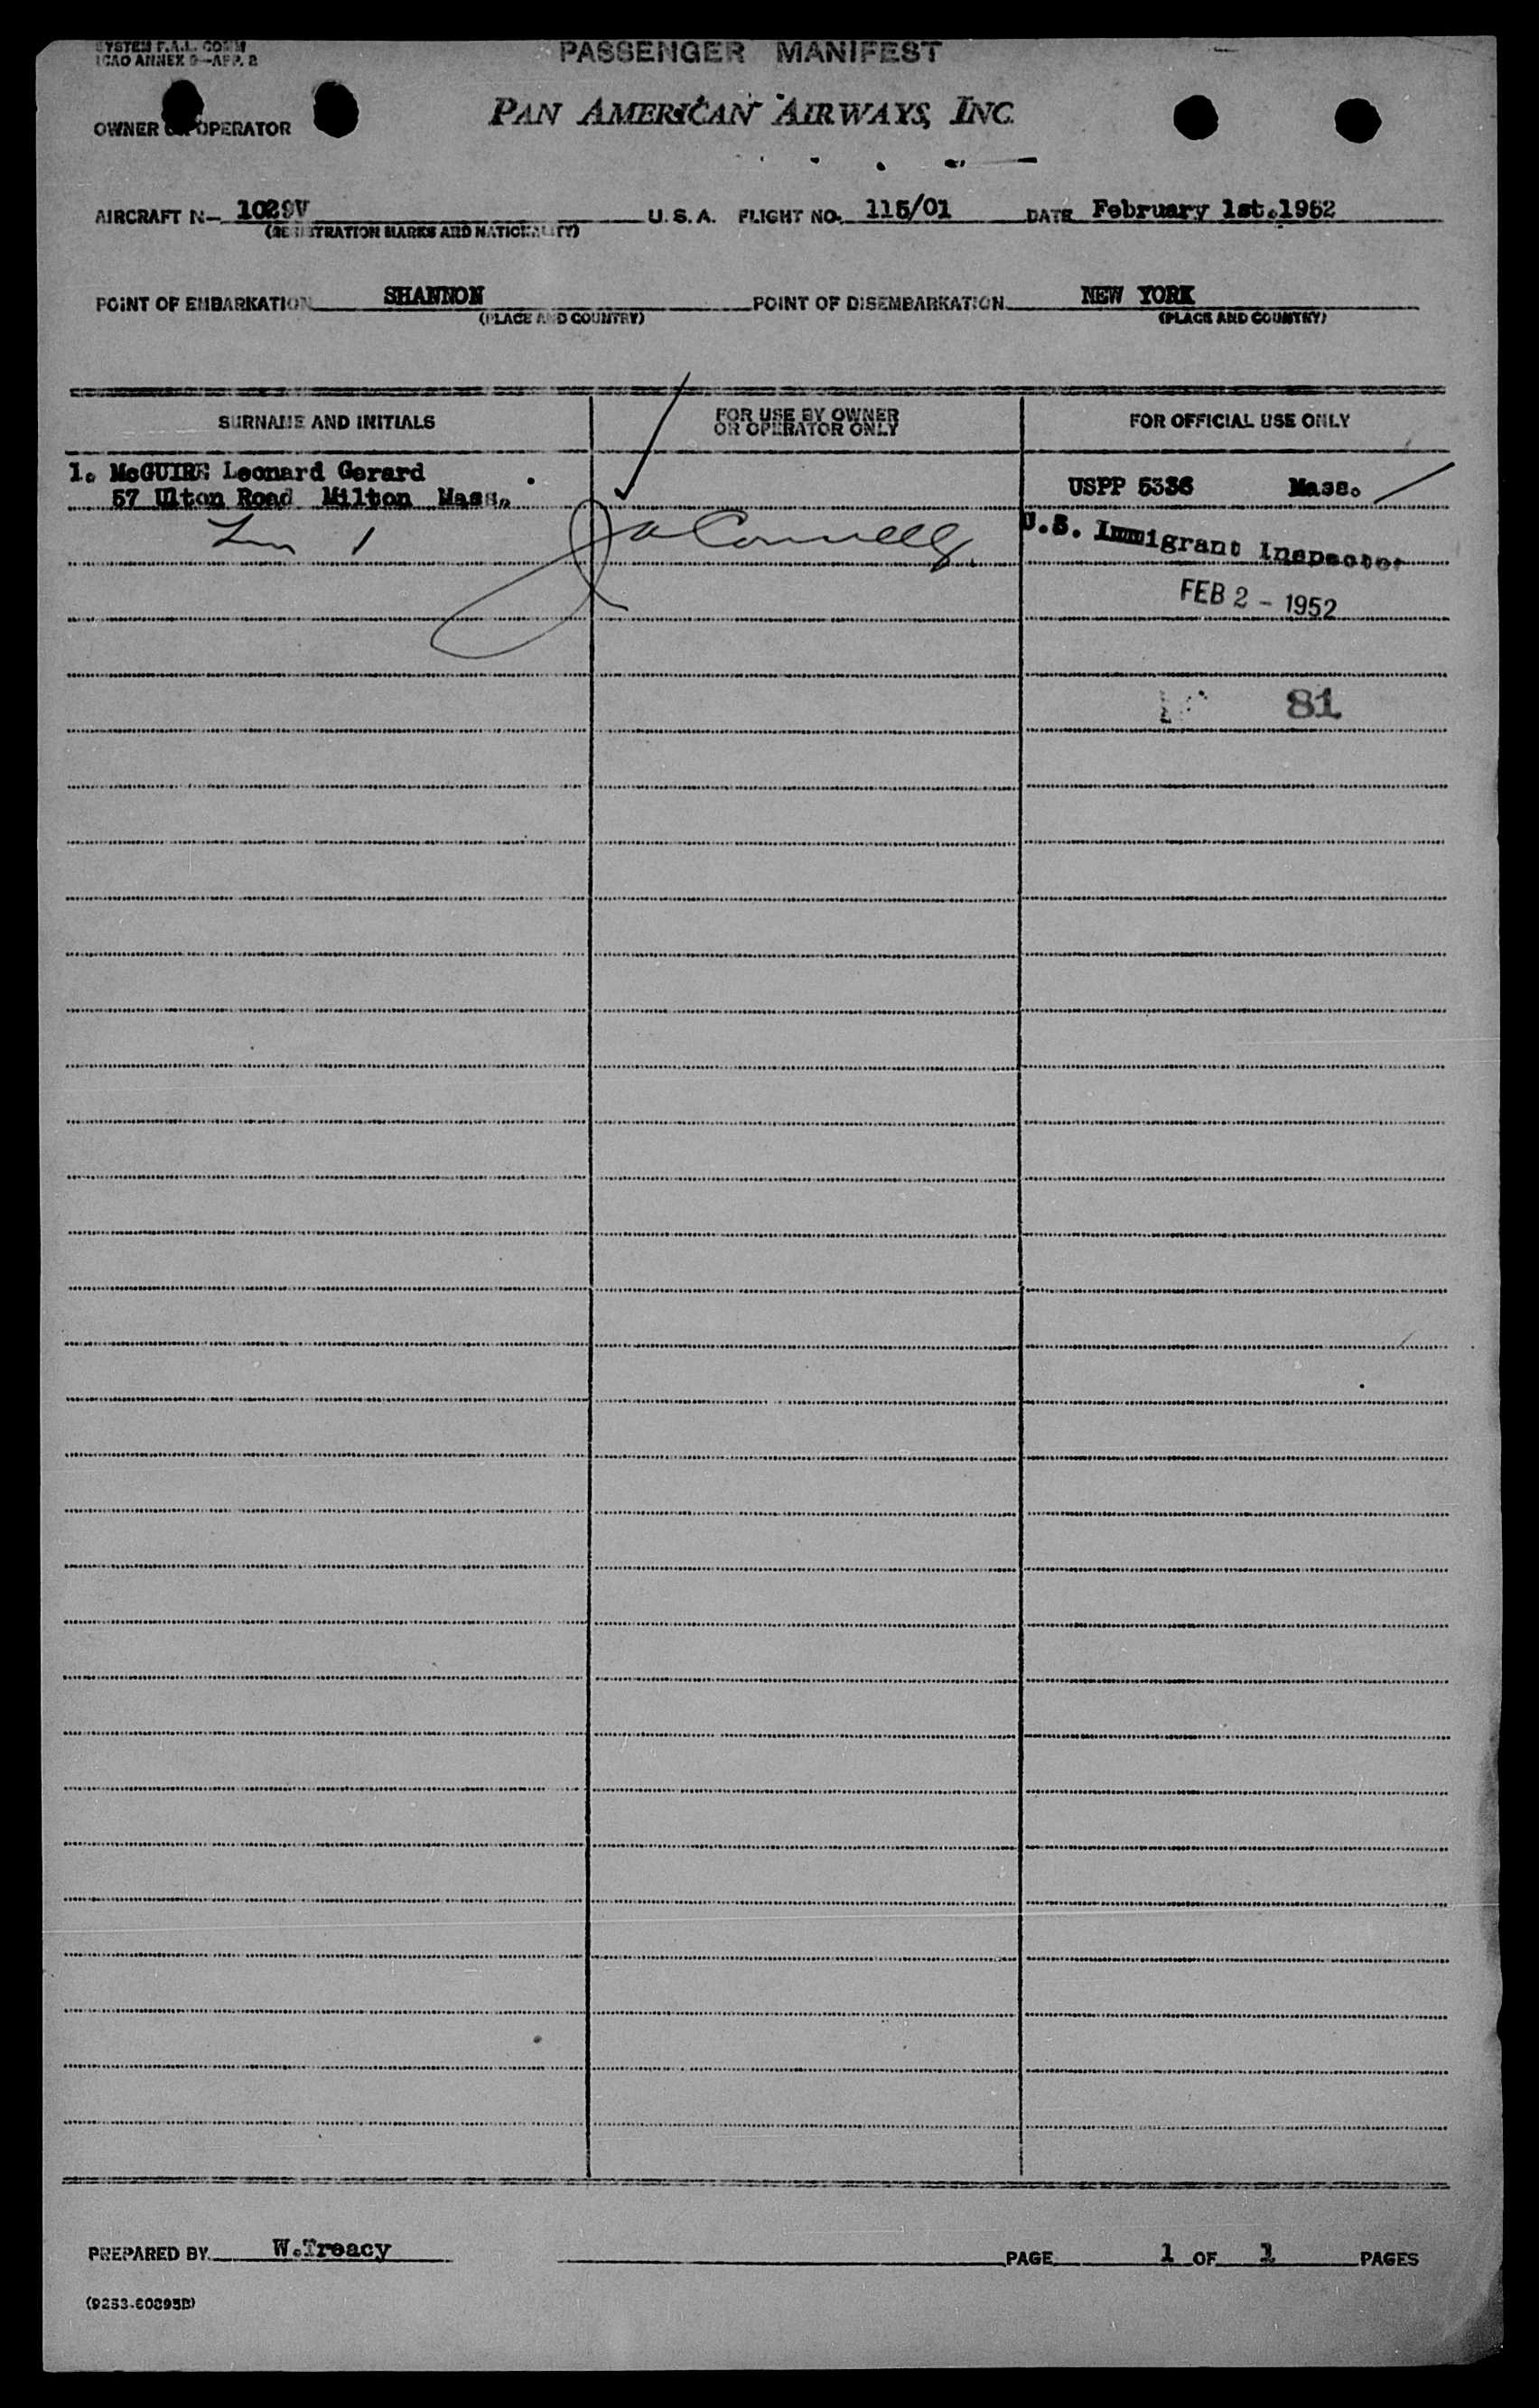 SYSTEM F.A.L. COMM
ICAO ANNEX 9—APP. 2
PASSENGER MANIFEST
OWNER OR OPERATOR
PAN AMERICAN AIRWAYS, INC.
AIRCRAFT N— 1029V U. S. A. FLIGHT NO. 115/01 DATE February 1st.1952
(REGISTRATION MARKS AND NATIONALITY)
POINT OF EMBARKATION SHANNON POINT OF DISEMBARKATION NEW YORK
(PLACE AND COUNTRY) (PLACE AND COUNTRY)
SURNAME AND INITIALS FOR USE BY OWNER OR OPERATOR ONLY FOR OFFICIAL USE ONLY
1. McGUIRE Leonard Gerard
57 Ulton Road Milton Mass. USPP 5336 Mass.
U.S. Immigrant Inspector
FEB 2 - 1952
81
PREPARED BY W.Treacy PAGE 1 OF 1 PAGES
(9253-60895B)